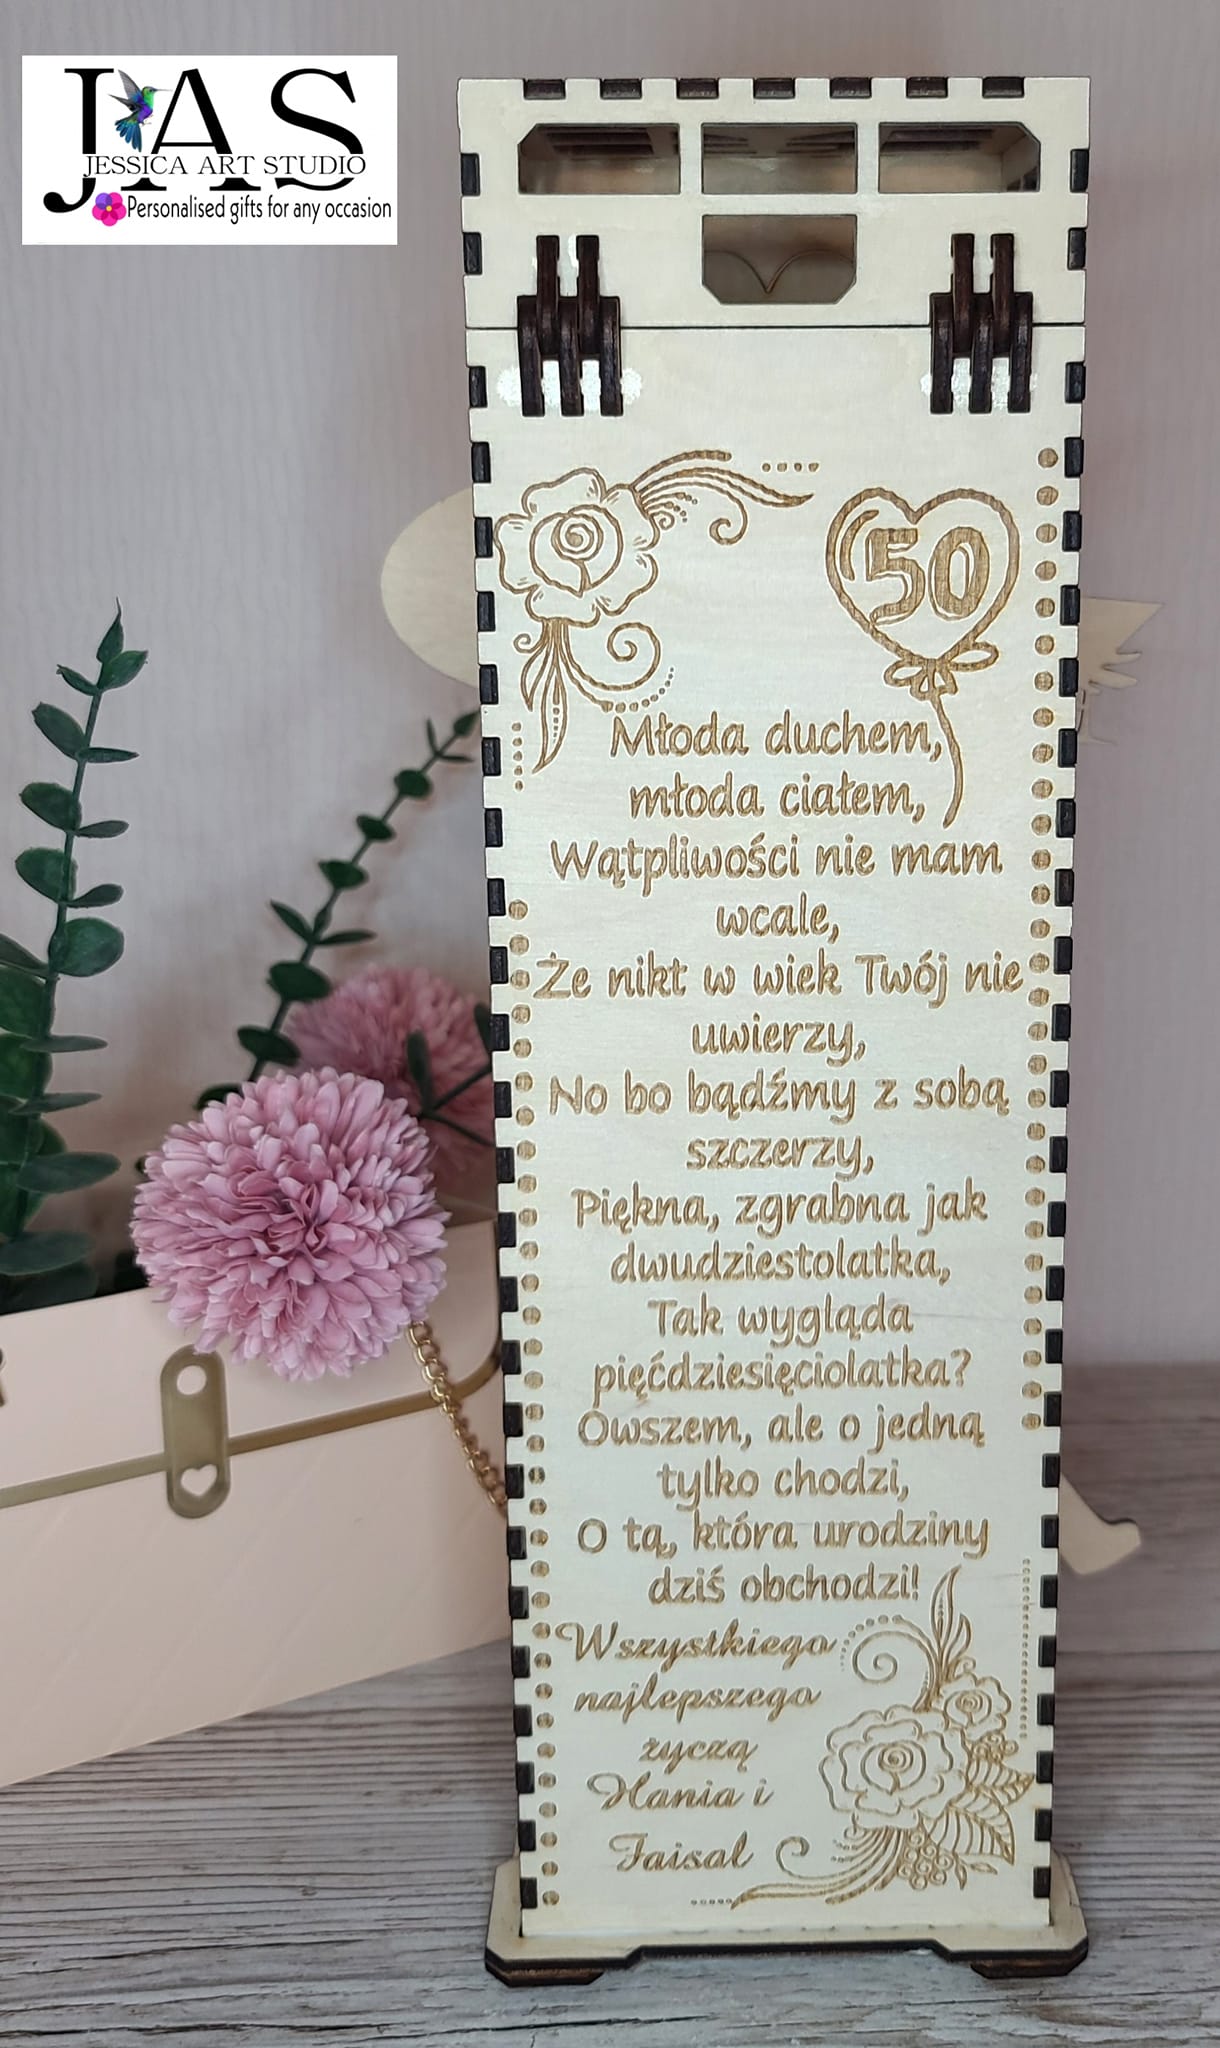 JAS
JESSICA ART STUDIO
Personalised gifts for any occasion
50
Młoda duchem,
młoda ciałem,
Wątpliwości nie mam
wcale,
Że nikt w wiek Twój nie
uwierzy,
No bo bądźmy z sobą
szczerzy,
Piękna, zgrabna jak
dwudziestolatka,
Tak wygląda
pięćdziesięciolatka?
Owszem, ale o jedną
tylko chodzi,
O tą, która urodziny
dziś obchodzi!
Wszystkiego
najlepszego
życzą
Hania i
Faisal